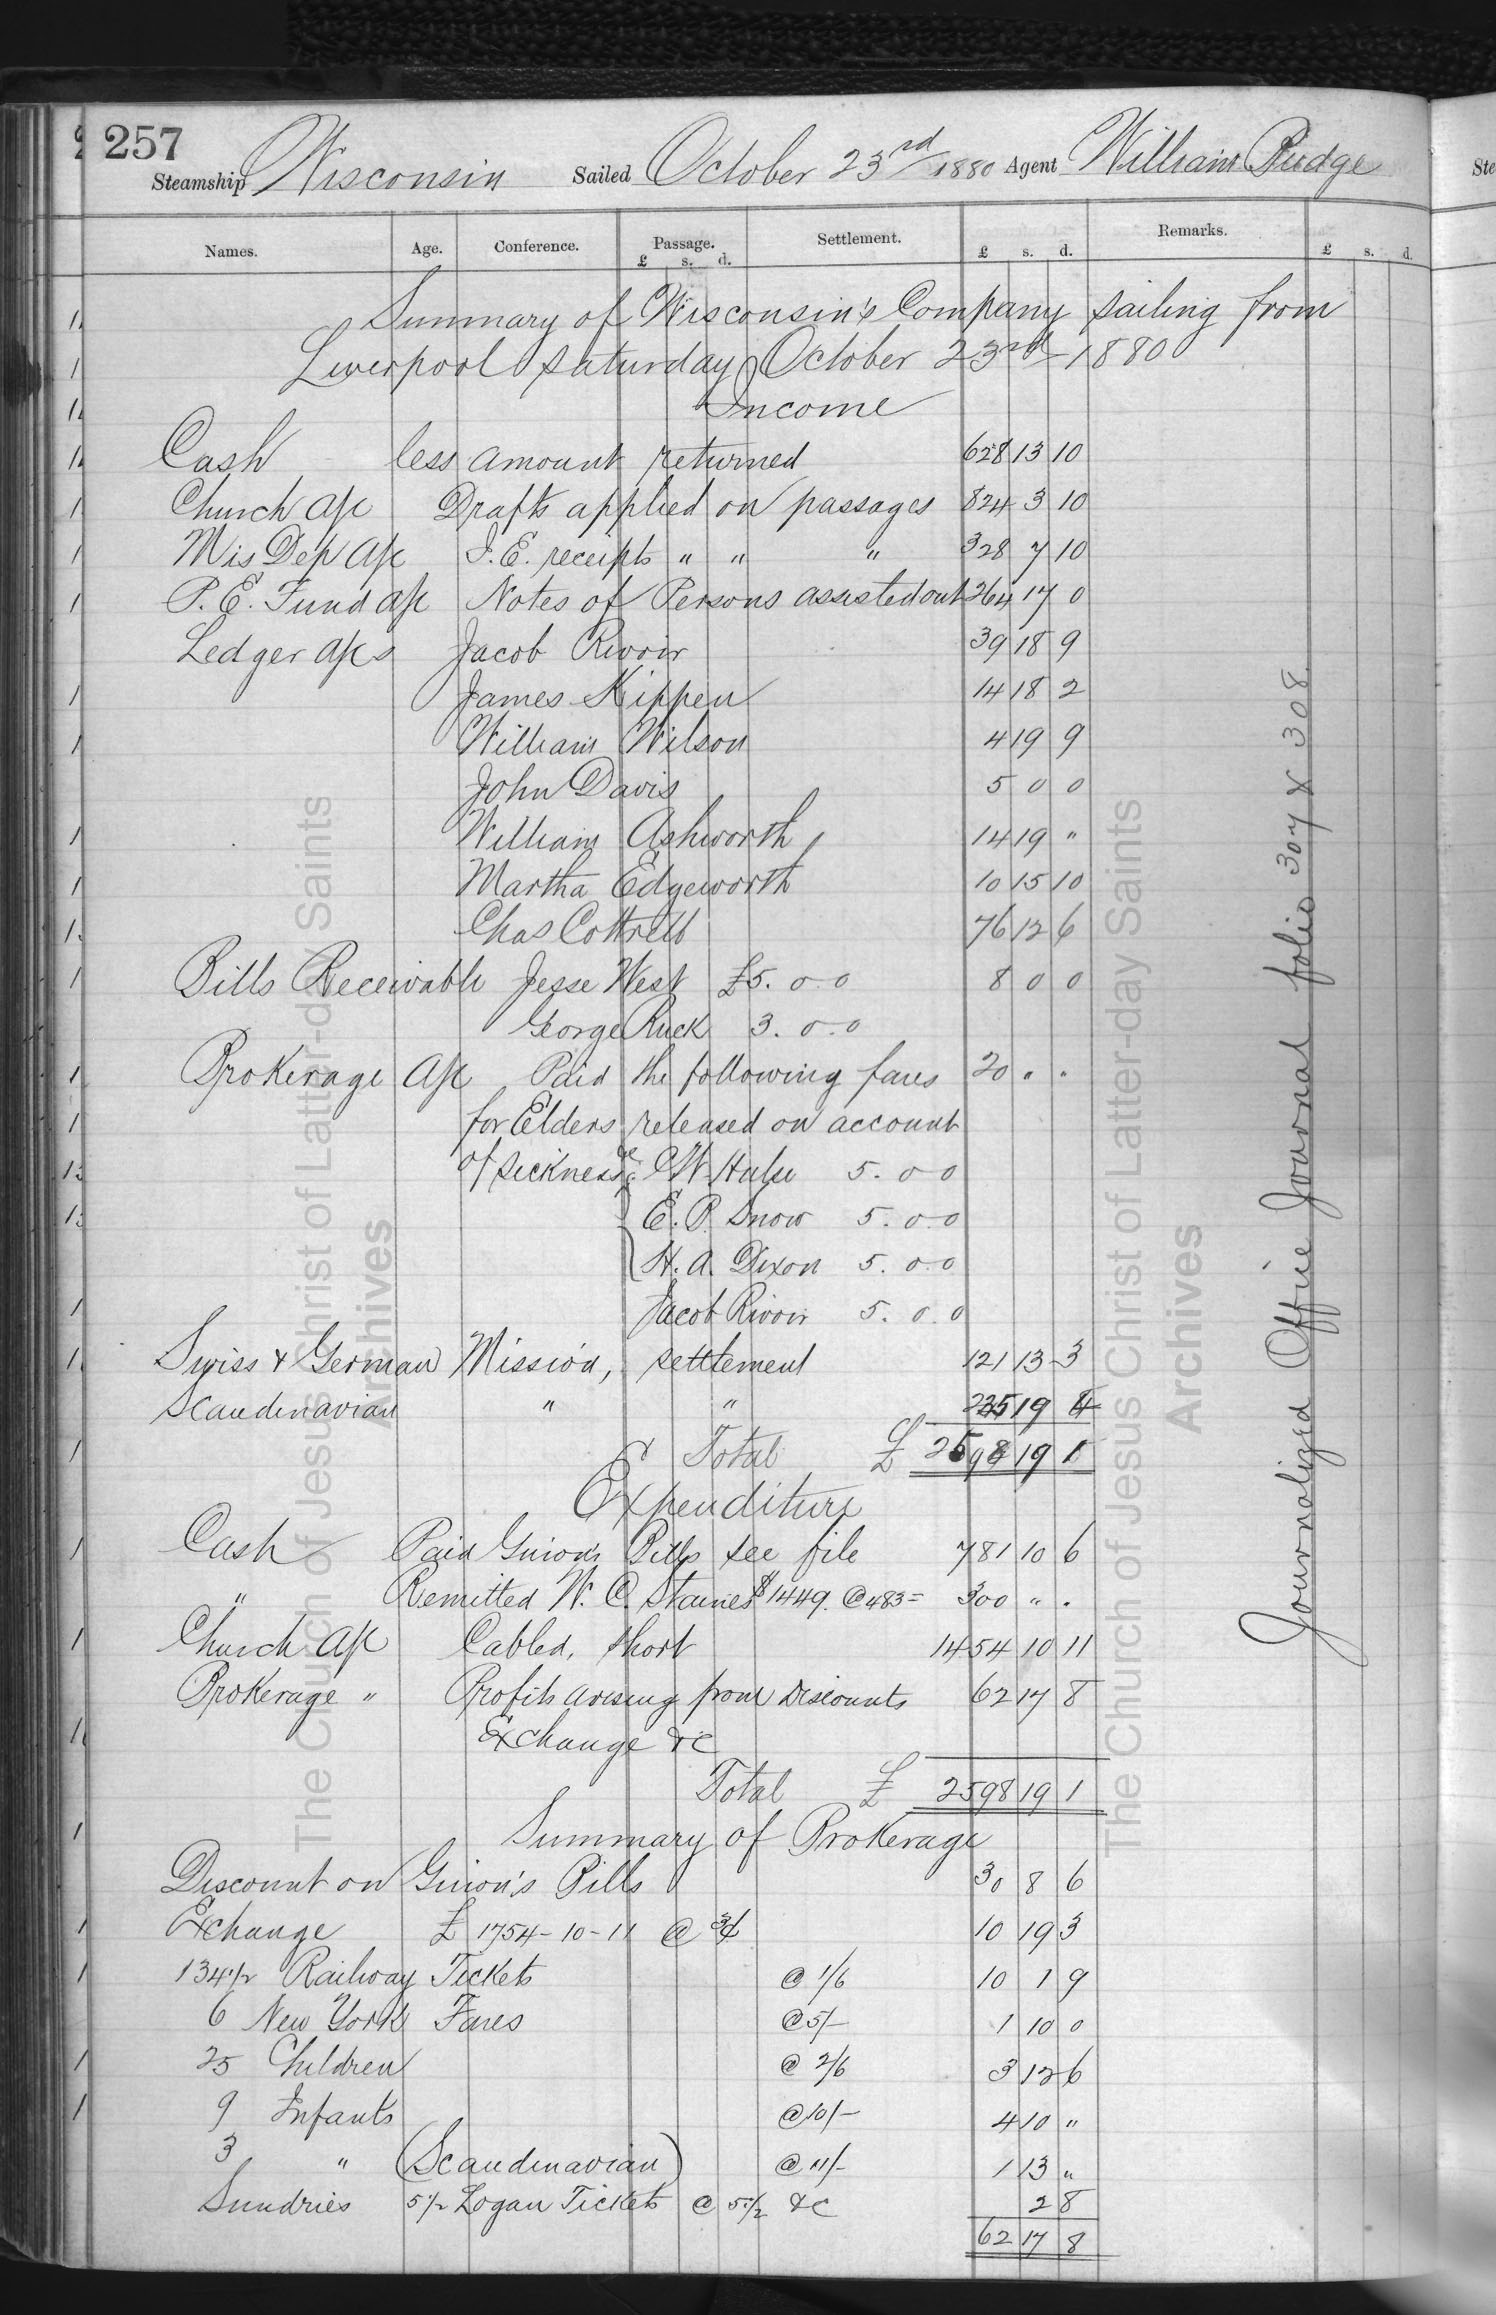 257
Steamship Wisconsin Sailed October 23rd 1880 Agent William Budge
Names. Age. Conference. Passage. Settlement. £ s. d. Remarks. £ s. d.
£ s. d.
Summary of Wisconsin's Company sailing from
Liverpool Saturday October 23rd 1880
Income
Cash less amount returned 628 13 10
Church a/c Drafts applied on passages 824 3 10
Mis Dep a/c I.E. receipts " " " 328 7 10
P.E. Fund a/c Notes of Persons assisted out 264 17 0
Ledger a/cs Jacob Rivoir 39 18 9
James Kippen 14 18 2
William Wilson 4 19 9
John Davis 5 0 0
William Ashworth 14 19 "
Martha Edgeworth 10 15 10
Chas Cottrell 76 12 6
Bills Receivable Jesse West £5. 0.0 8 0 0
George Ruck 3. 0.0
Brokerage a/c Paid the following fares 20 " "
for Elders released on account
of sickness &c: C.W. Hulse 5. 0 0
E. P. Snow 5. 0.0
H. A. Dixon 5. 0.0
Jacob Rivoir 5. 0.0
Swiss & German Mission, settlement 121 13 3
Scandinavian " " 235 19 4
Total £ 2598 19 1
Expenditure
Cash Paid Guion's Bills see file 781 10 6
" Remitted W. C. Staines $1449. @ 483= 300 " "
Church a/c Cabled, short 1454 10 11
Brokerage " Profits arising from Discounts 62 17 8
Exchange &c
Total £ 2598 19 1
Summary of Brokerage
Discount on Guion's Bills 30 8 6
Exchange £ 1754-10-11 @ 10 19 3
134 1/2 Railway Tickets @ 1/6 10 1 9
6 New York Fares @ 5/- 1 10 0
25 Children @ 2/6 3 12 6
9 Infants @ 10/- 4 10 "
3 " (Scandinavian) @ 11/- 1 13 "
Sundries 5 1/2 Logan Tickets @ 5 1/2 &c 2 8
62 17 8
Journalized Office Journal folio 307 & 308
The Church of Jesus Christ of Latter-day Saints
Archives
The Church of Jesus Christ of Latter-day Saints
Archives
Ste